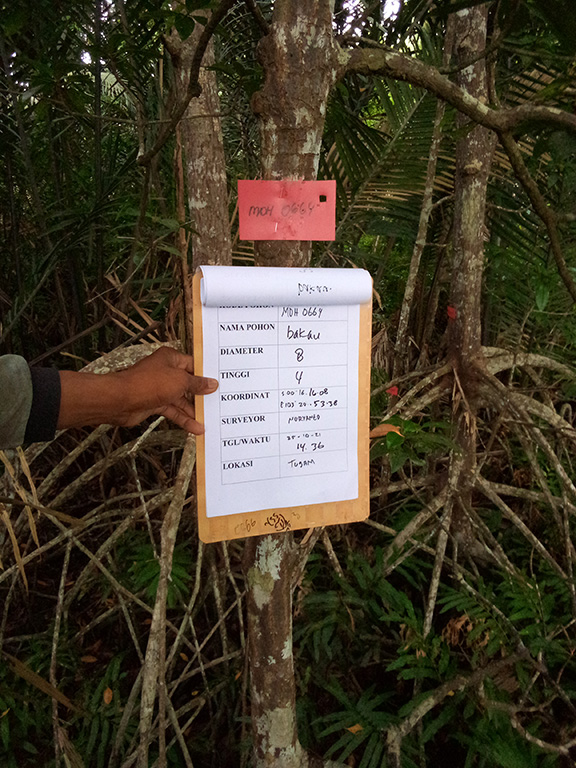 MDH 0664
1
KODE POHON MDH 0664
NAMA POHON bakau
DIAMETER 8
TINGGI 4
KOORDINAT S 00°16'.16.08
E 103° 20'.53.38
SURVEYOR NORYANTO
TGL/WAKTU 20-10-21
14.36
LOKASI TUGAM